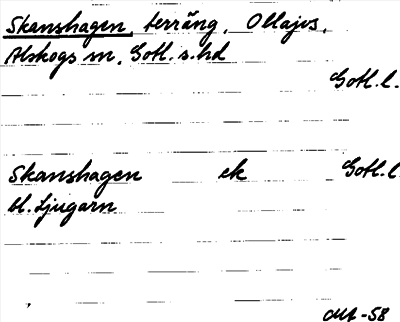 Skanshagen, terräng, Ollajvs,
Alskogs sn, Gotl. s. hd
Gotl. l.
Skanshagen ek Gotl. l
bl. Ljugarn
-58